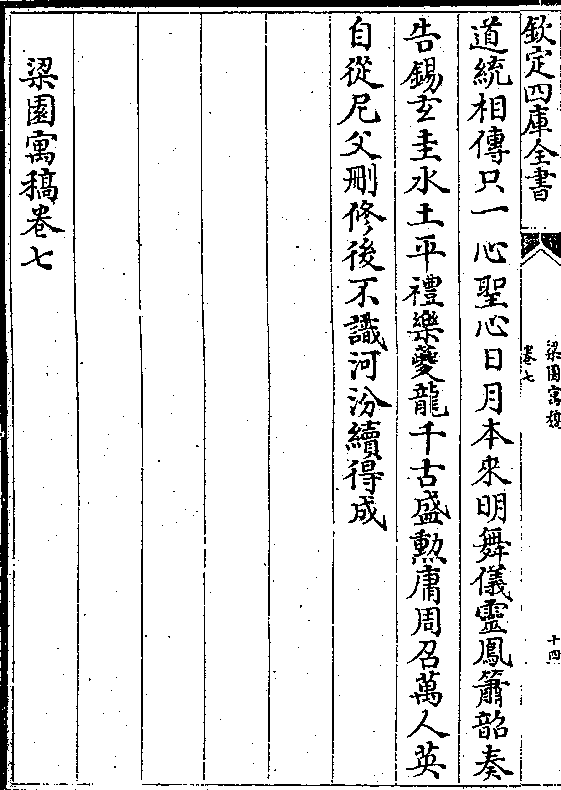 欽定四庫全書
梁園寓稿
卷七
十四
道統相傳只一心聖心日月本來明舞儀靈鳳簫韶奏
告錫玄圭水土平禮樂夔龍千古盛勲庸周召萬人英
自從尼父刪修後不識河汾續得成
梁園寓稿卷七